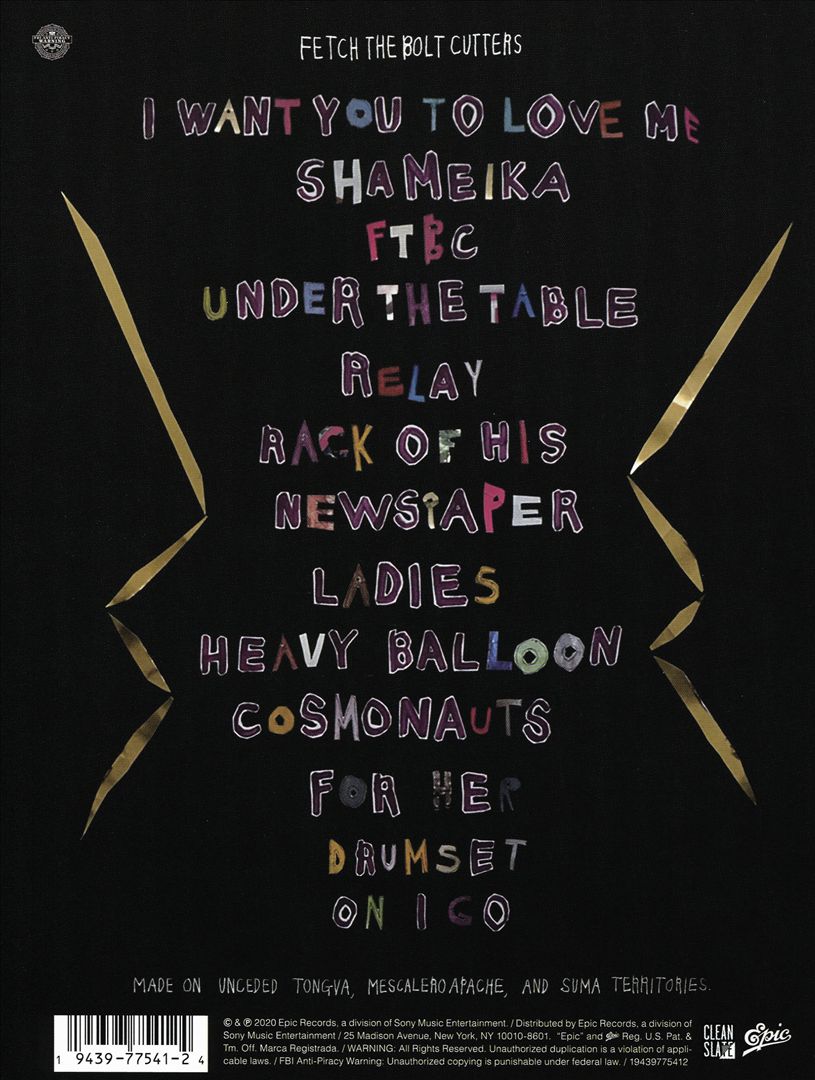 FBI ANTI-PIRACY
WARNING
FETCH THE BOLT CUTTERS
I WANT YOU TO LOVE ME
SHAMEIKA
FTBC
UNDER THE TABLE
RELAY
RACK OF HIS
NEWSPAPER
LADIES
HEAVY BALLOON
COSMONAUTS
FOR HER
DRUMSET
ON I GO
MADE ON UNCEDED TONGVA, MESCALERO APACHE, AND SUMA TERRITORIES.
1 9439-77541-2 4
© & ℗ 2020 Epic Records, a division of Sony Music Entertainment. / Distributed by Epic Records, a division of
Sony Music Entertainment / 25 Madison Avenue, New York, NY 10010-8601. "Epic" and Epic Reg. U.S. Pat. &
Tm. Off. Marca Registrada. / WARNING: All Rights Reserved. Unauthorized duplication is a violation of appli-
cable laws. / FBI Anti-Piracy Warning: Unauthorized copying is punishable under federal law. / 19439775412
CLEAN
SLATE
Epic